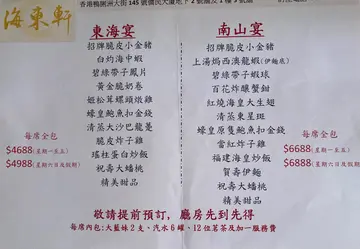 海東軒
香港鴨脷洲大街145號
東海宴
招牌脆皮小金豬
白灼海中蝦
碧綠帶子鳳片
黃金脆奶卷
姬松茸螺頭燉雞
蠔皇鮑魚扣金錢
清蒸大沙巴龍躉
脆皮炸子雞
瑤柱蛋白炒飯
祝壽大蟠桃
精美甜品
每席全包
$4688(星期一至五)
$4988(星期六日及假期)
南山宴
招牌脆皮小金豬
上湯焗西澳龍蝦(伊麵底)
碧綠帶子蝦球
百花炸釀蟹鉗
紅燒海皇大生翅
清蒸東星斑
蠔皇原隻鮑魚扣金錢
當紅炸子雞
福建海皇炒飯
賀壽伊麵
祝壽大蟠桃
精美甜品
每席全包
$6688(星期一至五)
$6888(星期六日及假期)
敬請提前預訂, 廳房先到先得
每席內包:大藍妹2支、汽水6罐、12位茗茶及加一服務費